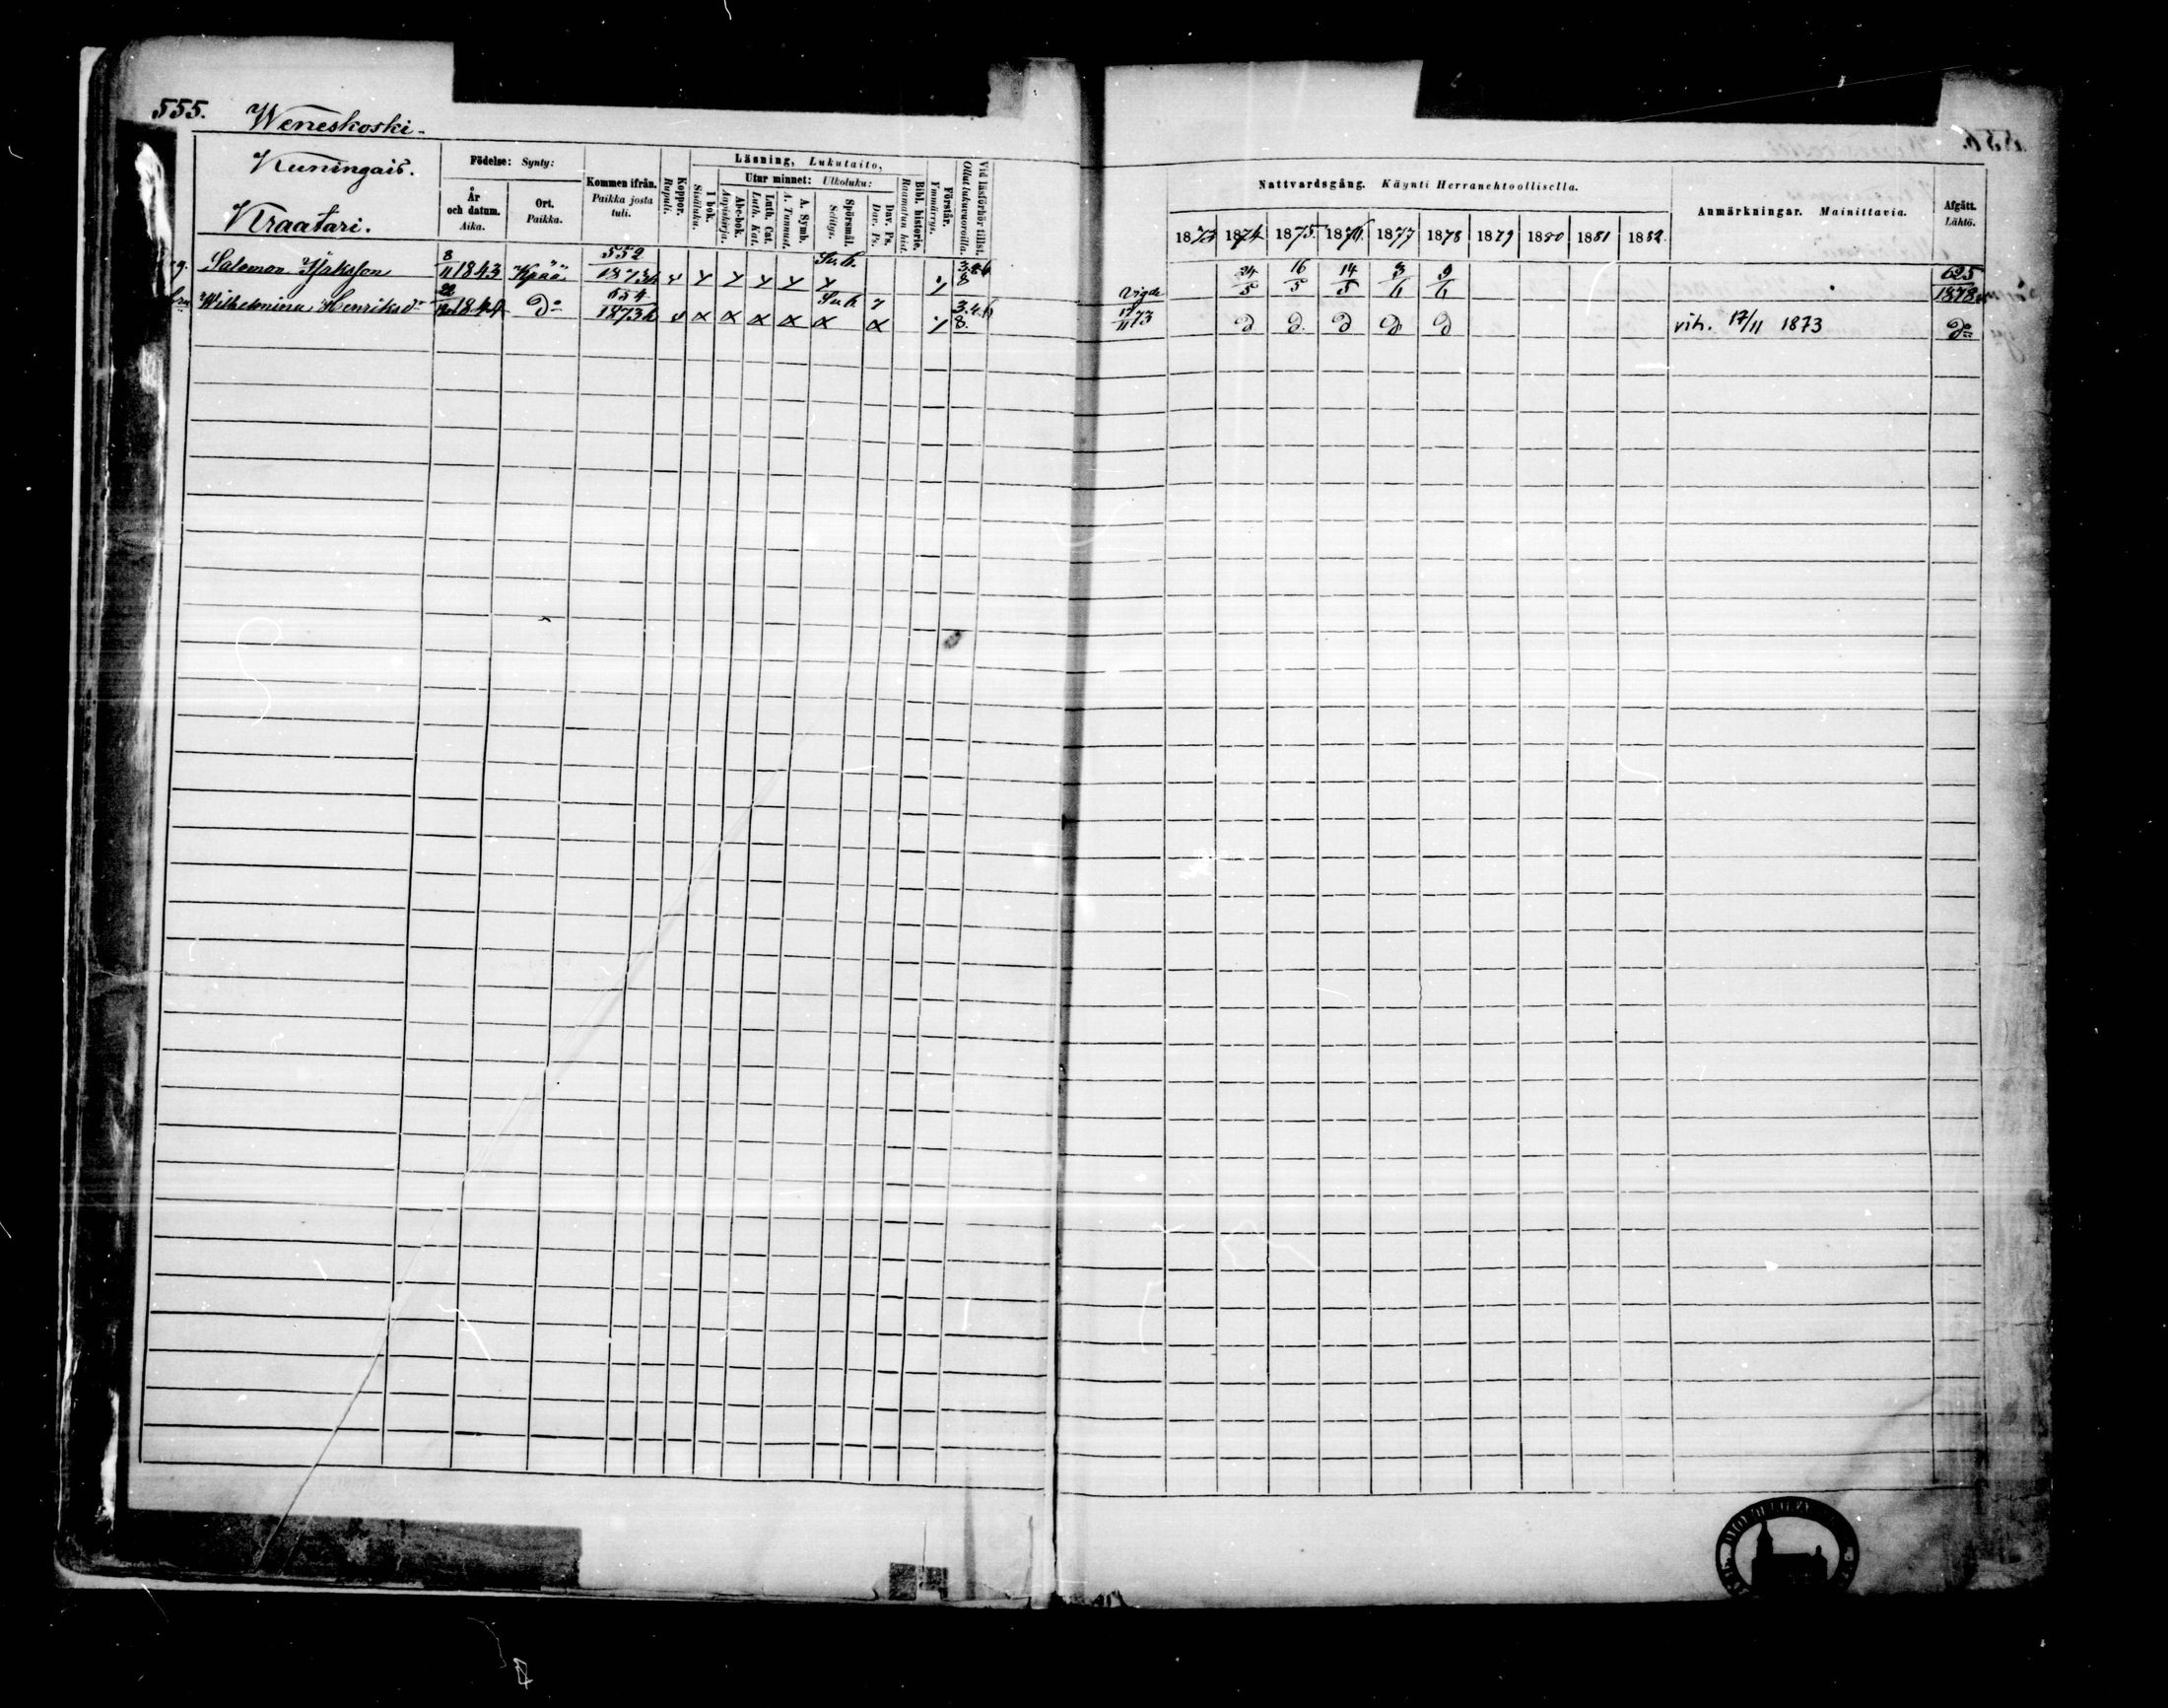 555.
Weneskoski.
Kuningais.
Kraatari.
Födelse: Synty:
År och datum. Aika.
Ort. Paikka.
Kommen ifrån. Paikka josta tuli.
Koppor. Rupuli.
Läsning, Lukutaito,
I bok. Sisäluku.
Utur minnet: Ulkoluku:
Abc-bok. Aapiskirja.
Luth. Cat. Luth. Kat.
A. Symb. A. Tunnust.
Spörsmål. Selitys.
Dav. Ps. Dav. Ps.
Bibl. historie. Raamatun hist.
Förstår. Ymmärrys.
Vid läsförhör tillst. Ollut lukuvuoroilla.
Salomon Isaksson 8/11 1843 Kpää 552 1873
Wilhelmiina Henriksd:r 1844 D:o 554 1873
556.
Nattvardsgång. Käynti Herranehtoollisella.
1873 1874 1875. 1876. 1877 1878 1879 1880 1881 1882
Anmärkningar. Mainittavia.
Afgått. Lähtö.
24/5 16/5 14/5 3/6 9/6 625 1878
Vigde 17/11 73 D D D D D vih. 17/11 1873 D:o